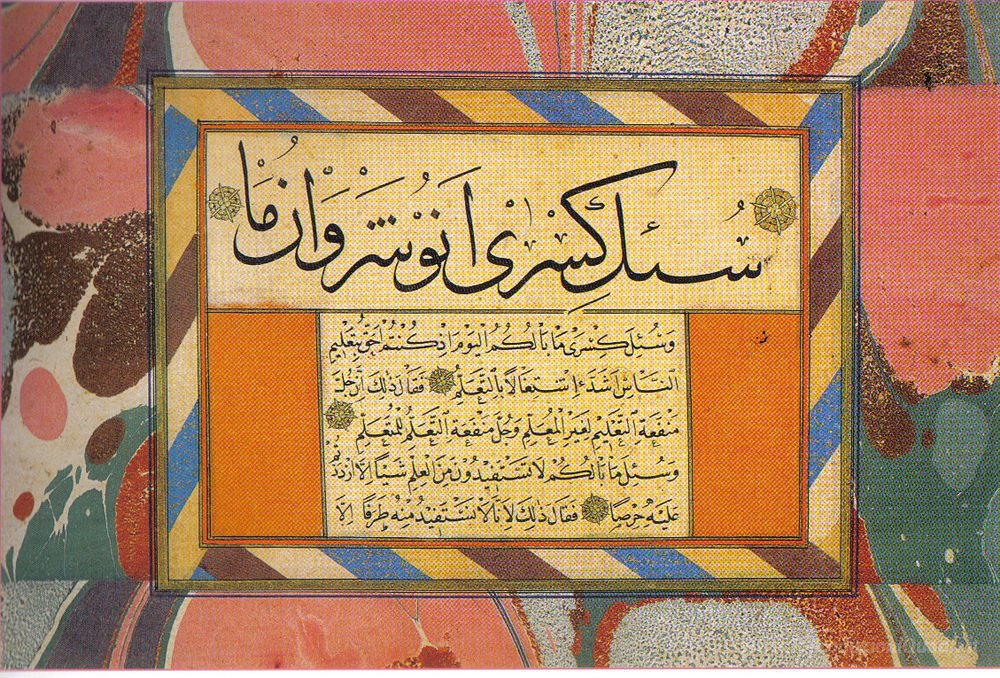 سُئِلَ كِسْرٰى اَنُوشَرْوَانُ مَا
وَسُئِلَ كِسْرٰى مَا بَالُكُمُ الْيَوْمَ اِذْ كُنْتُمْ اَحَقَّ بِتَعْلِيمِ
النَّاسِ اَشَدَّ اِشْتِغَالًا بِالتَّعَلُّمِ فَقَالَ ذٰلِكَ اَنَّ جُلَّ
مَنْفَعَةِ التَّعْلِيمِ لِغَيْرِ الْمُعَلِّمِ وَجُلَّ مَنْفَعَةِ التَّعَلُّمِ لِلْمُتَعَلِّمِ
وَسُئِلَ مَا بَالُكُمْ لَا تَسْتَفِيدُونَ مِنَ الْعِلْمِ شَيْئًا اِلَّا ازْدَدْتُمْ
عَلَيْهِ حِرْصًا فَقَالَ ذٰلِكَ لِاَنَّا لَا نَسْتَفِيدُ مِنْهُ طَرَفًا اِلَّا